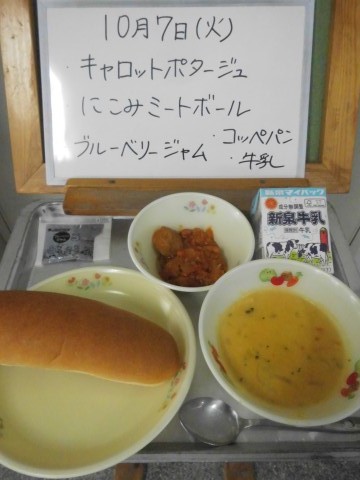 10月7日(火)
・キャロットポタージュ
にこみミートボール
ブルーベリージャム ・コッペパン
・牛乳
新泉牛乳
牛乳